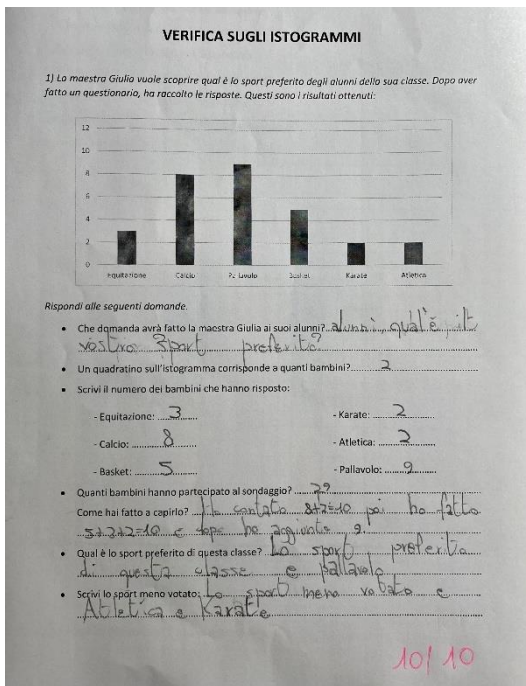 VERIFICA SUGLI ISTOGRAMMI
1) La maestra Giulia vuole scoprire qual è lo sport preferito degli alunni della sua classe. Dopo aver
fatto un questionario, ha raccolto le risposte. Questi sono i risultati ottenuti:
12
10
8
6
4
2
0
Equitazione Calcio Pallavolo Basket Karate Atletica
Rispondi alle seguenti domande.
• Che domanda avrà fatto la maestra Giulia ai suoi alunni? alunni, qual'è il
vostro sport preferito?
• Un quadratino sull'istogramma corrisponde a quanti bambini? 2
• Scrivi il numero dei bambini che hanno risposto:
- Equitazione: 3 - Karate: 2
- Calcio: 8 - Atletica: 2
- Basket: 5 - Pallavolo: 9
• Quanti bambini hanno partecipato al sondaggio? 29
Come hai fatto a capirlo? Ho contato 8+2=10 poi ho fatto
5+3+2=10 e dopo ho aggiunto 9.
• Qual è lo sport preferito di questa classe? Lo sport preferito
di questa classe e pallavolo
• Scrivi lo sport meno votato: Lo sport meno votato e
Atletica e Karate
10/10